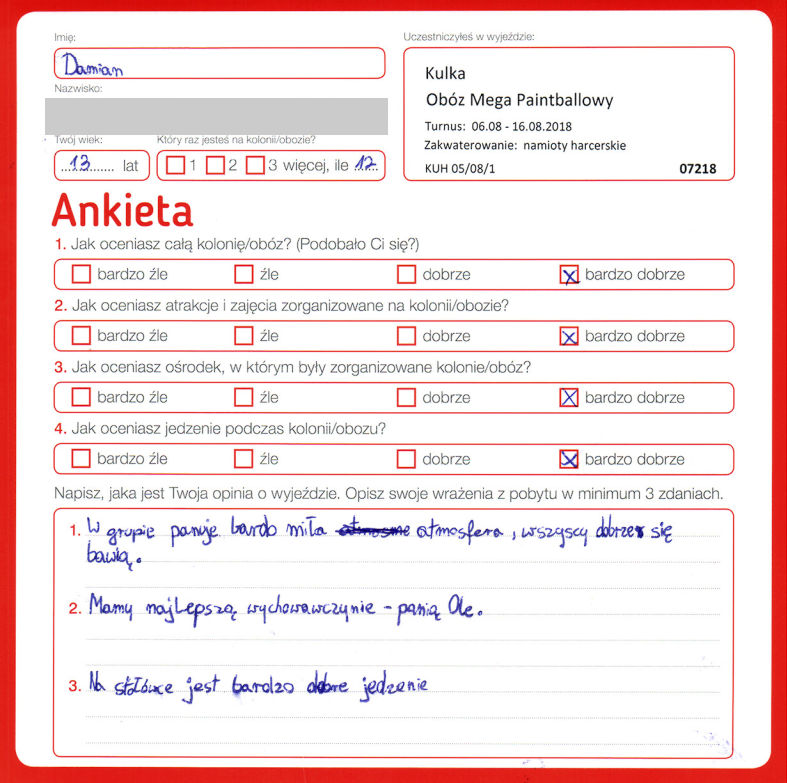 Imię:
Damian
Nazwisko:
Twój wiek:
13 lat
Który raz jesteś na kolonii/obozie?
1 2 3 więcej, ile 12
Uczestniczyłeś w wyjeździe:
Kulka
Obóz Mega Paintballowy
Turnus: 06.08 - 16.08.2018
Zakwaterowanie: namioty harcerskie
KUH 05/08/1 07218
Ankieta
1. Jak oceniasz całą kolonię/obóz? (Podobało Ci się?)
bardzo źle źle dobrze bardzo dobrze
2. Jak oceniasz atrakcje i zajęcia zorganizowane na kolonii/obozie?
bardzo źle źle dobrze bardzo dobrze
3. Jak oceniasz ośrodek, w którym były zorganizowane kolonie/obóz?
bardzo źle źle dobrze bardzo dobrze
4. Jak oceniasz jedzenie podczas kolonii/obozu?
bardzo źle źle dobrze bardzo dobrze
Napisz, jaka jest Twoja opinia o wyjeździe. Opisz swoje wrażenia z pobytu w minimum 3 zdaniach.
1. W grupie panuje bardo miła atmosfera, wszyscy dobrze się
bawią.
2. Mamy najlepszą wychowawczynie - panią Ole.
3. Na stołówce jest bardzo dobre jedzenie